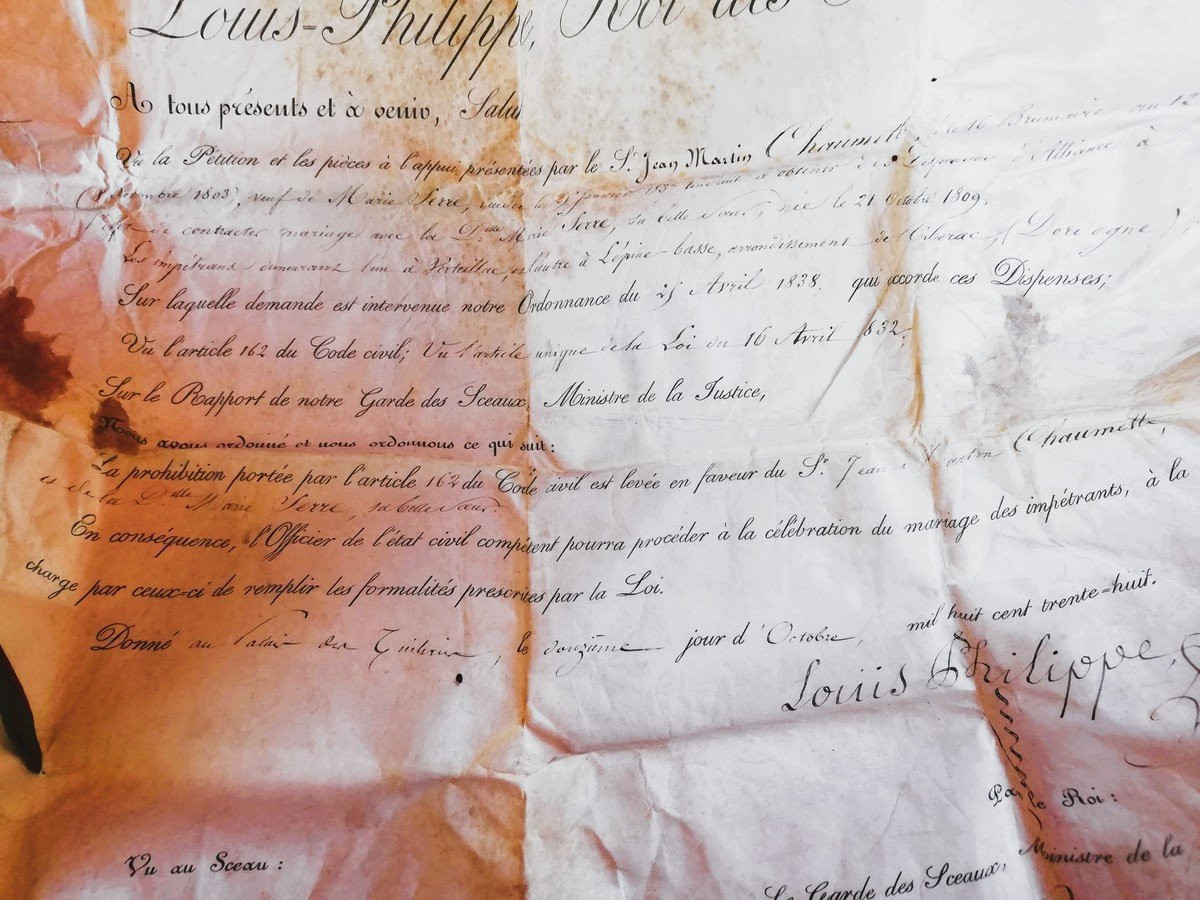 Louis-Philippe, Roi des
A tous présents et à venir, Salut
Vu la Pétition et les pièces à l'appui présentées par le Sr. Jean Martin Chaumette, né le 16 Brumaire an 12
1803), veuf de Marie Serre, décédée le janvier tendant à obtenir d'Alliance à
de contracter mariage avec la Dlle Marie Serre, sa belle Sœur, née le 21 Octobre 1809.
Les impétrans demeurant l'un à Verteillac, l'autre à Lépine-basse, arrondissement de Riberac, (Dordogne);
Sur laquelle demande est intervenue notre Ordonnance du Avril 1838, qui accorde ces Dispenses;
Vu l'article 162 du Code civil; Vu l'article unique de la Loi du 16 Avril 1832;
Sur le Rapport de notre Garde des Sceaux, Ministre de la Justice,
Nous avons ordonné et nous ordonnons ce qui suit:
La prohibition portée par l'article 162 du Code civil est levée en faveur du Sr. Jean Martin Chaumette,
et de la Dlle Marie Serre, sa belle Sœur.
En conséquence, l'Officier de l'état civil compétent pourra procéder à la célébration du mariage des impétrants, à la
charge par ceux-ci de remplir les formalités prescrites par la Loi.
Donné au Palais des Tuileries, le douzième jour d'Octobre, mil huit cent trente-huit.
Louis Philippe
Par le Roi:
Vu au Sceau:
Le Garde des Sceaux, Ministre de la